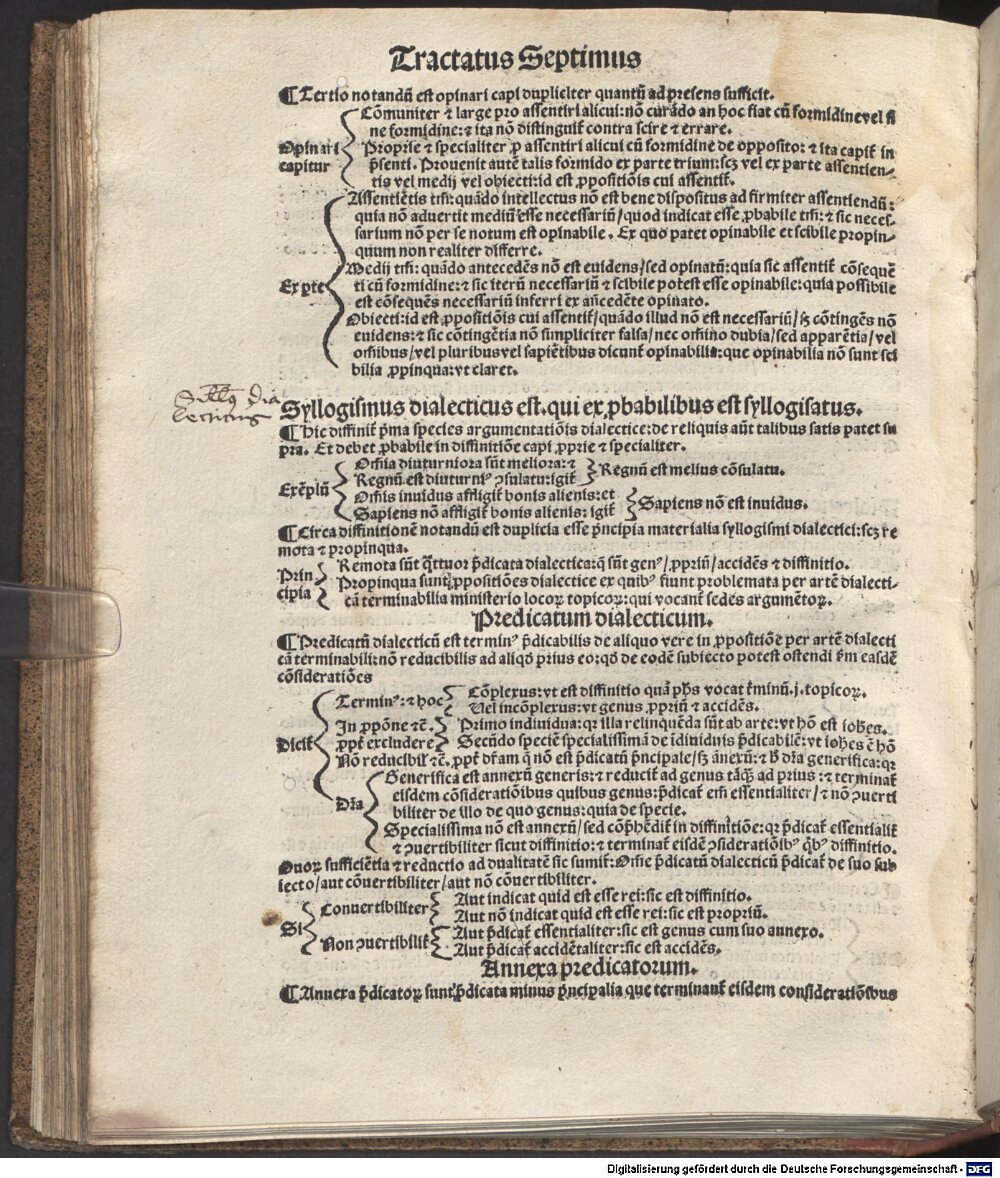 Tractatus Septimus
¶ Tertio notandū est opinari capi dupliciter quantū ad presens sufficit.
Cōmuniter ⁊ large pro assentiri alicui: nō curādo an hoc fiat cū formidine vel si
ne formidine: ⁊ ita nō distinguit̄ contra scire ⁊ errare.
Opinari
capitur
Proprie ⁊ specialiter ꝓ assentiri alicui cū formidine de opposito: ⁊ ita capit̄ in
p̄senti. Prouenit autē talis formido ex parte trium: scꝫ vel ex parte assentien-
tis vel medij vel obiecti: id est ꝓpositiōis cui assentit̄.
Ex ꝑte
Assentiētis tm̄: quādo intellectus nō est bene dispositus ad firmiter assentiendū:
quia nō aduertit mediū esse necessariū/ quod indicat esse ꝓbabile tm̄: ⁊ sic neces-
sarium nō per se notum est opinabile. Ex quo patet opinabile et scibile propin-
quum non realiter differre.
Medij tm̄: quādo antecedēs nō est euidens/ sed opinatū: quia sic assentit̄ cōseque
ti cū formidine: ⁊ sic iterū necessariū ⁊ scibile potest esse opinabile: quia possibile
est cōsequēs necessariū inferri ex añcedēte opinato.
Obiecti: id est ꝓpositiōis cui assentit̄/ quādo illud nō est necessariū/ sꝫ cōtingēs nō
euidens: ⁊ sic cōtingētia nō simpliciter falsa/ nec om̄ino dubia/ sed apparētia/ vel
om̄ibus/ vel pluribus vel sapiētibus dicunt̄ opinabilia: que opinabilia nō sunt sci
bilia ꝓpinqua: vt claret.
Sill9 dia
lecticus
Syllogismus dialecticus est. qui ex ꝓbabilibus est syllogisatus.
¶ Hic diffinit̄ p̄ma species argumentatiōis dialectice: de reliquis aūt talibus satis patet su
pra. Et debet ꝓbabile in diffinitiōe capi ꝓprie ⁊ specialiter.
Exēplū
Om̄ia diuturniora sūt meliora: ⁊
Regnū est diuturniꝰ ꝯsulatu: igit̄
Regnū est melius cōsulatu.
Om̄is inuidus affligit̄ bonis alienis: et
Sapiens nō affligit̄ bonis alienis: igit̄
Sapiens nō est inuidus.
¶ Circa diffinitionē notandū est duplicia esse p̄ncipia materialia syllogismi dialectici: scꝫ re
mota ⁊ propinqua.
Prin
cipia
Remota sūt q̄ttuor p̄dicata dialectica: q̄ sūt genꝰ/ ꝓpriū/ accidēs ⁊ diffinitio.
Propinqua sunt ꝓpositiōes dialectice ex quibꝰ fiunt problemata per artē dialecti-
cā terminabilia ministerio locoꝝ topicoꝝ: qui vocant̄ sedes argumētoꝝ.
Predicatum dialecticum.
¶ Predicatū dialecticū est terminꝰ p̄dicabilis de aliquo vere in ꝓpositiōe per artē dialecti
cā terminabili: nō reducibilis ad aliqd̄ prius eo: qd̄ de eodē subiecto potest ostendi s̄m easdē
cōsideratiōes
Dicit̄
Terminꝰ: ⁊ hoc
Cōplexus: vt est diffinitio quā ph̄s vocat t̄minū .j. topicoꝝ.
Vel incōplexus: vt genus ꝓpriū ⁊ accidēs.
In ꝓpōne ⁊c̄.
ꝓpt̄ excludere
Primo indiuidua: qꝛ illa relinquēda sūt ab arte: vt hō est ioh̄es.
Secūdo speciē specialissimā de īdiuiduis p̄dicabilē: vt ioh̄es ē hō
Nō reducibil̄ ⁊c̄. ꝓpt̄ dr̄am q̄ nō est p̄dicatū p̄ncipale/ sꝫ ānexū: ⁊ h̄ dr̄a generifica: qꝛ
Dr̄a
Generifica est annexū generis: ⁊ reducit̄ ad genus tāqꝫ ad prius: ⁊ terminat̄
eisdem cōsideratiōibus quibus genus: p̄dicat̄ em̄ essentialiter/ ⁊ nō ꝯuerti
biliter de illo de quo genus: quia de specie.
Specialissima nō est annexū/ sed cōp̄hēdit̄ in diffinitiōe: qꝛ p̄dicat̄ essentialit̄
⁊ ꝯuertibiliter sicut diffinitio: ⁊ terminat̄ eisdē ꝯsideratiōibꝰ q̄bꝰ diffinitio.
Quoꝝ sufficiētia ⁊ reductio ad dualitatē sic sumit̄: Om̄e p̄dicatū dialecticū p̄dicat̄ de suo sub
iecto/ aut cōuertibiliter/ aut nō cōuertibiliter.
Si
Conuertibiliter
Aut indicat quid est esse rei: sic est diffinitio.
Aut nō indicat quid est esse rei: sic est propriū.
Non ꝯuertibilit̄
Aut p̄dicat̄ essentialiter: sic est genus cum suo annexo.
Aut p̄dicat̄ accidētaliter: sic est accidēs.
Annexa predicatorum.
¶ Annexa p̄dicatoꝝ sunt p̄dicata minus p̄ncipalia que terminant̄ eisdem consideratiōibus
Digitalisierung gefördert durch die Deutsche Forschungsgemeinschaft - DFG